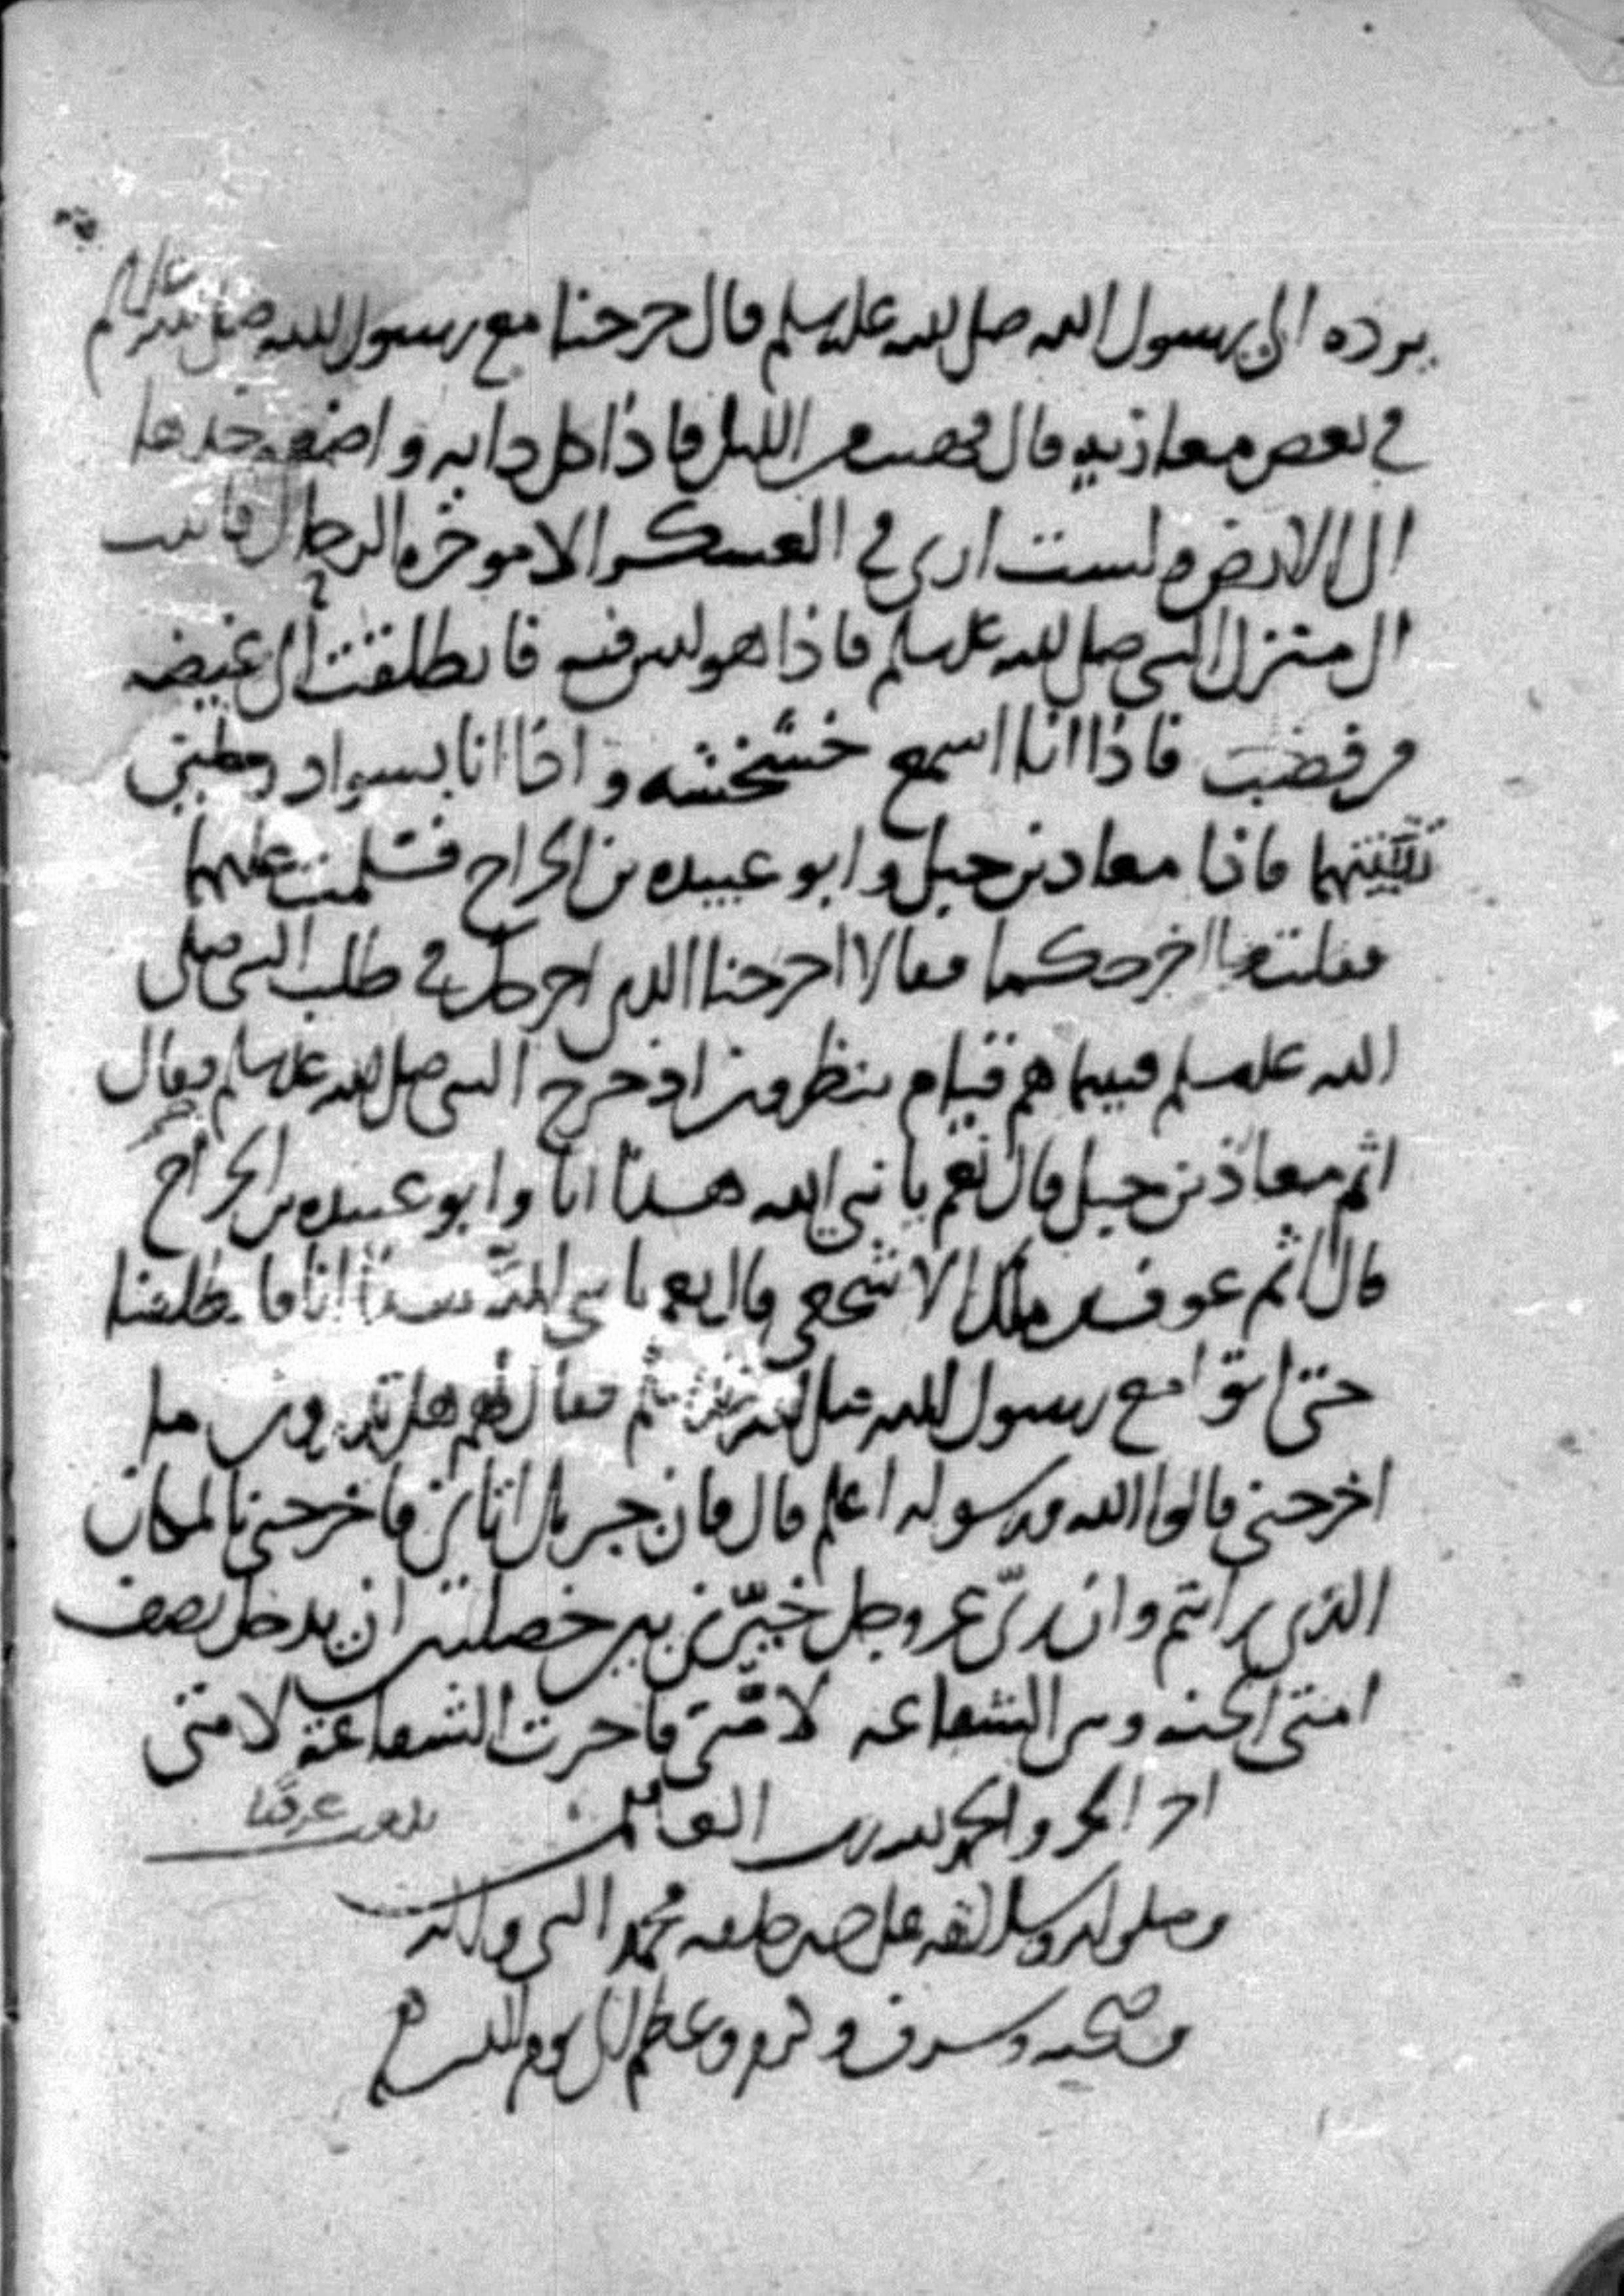 يرده الى رسول الله صلى الله عليه وسلم قال خرجنا مع رسول الله صلى الله عليه وسلم
في بعض مغازيه قال فقمت من الليل فاذا كل دابه واضعه خدها
الى الارض ولست ارى في العسكر الا موخره الرحال فاتيت
الى منزل النبي صلى الله عليه وسلم فاذا هو ليس فيه فانطلقت الى غيضه
فاذا انا اسمع خشخشه واذا انا بسواد
فاذا معاذ بن جبل وابو عبيده بن الجراح فسلمت عليهما
فقلت ما اخرجكما فقالا اخرجنا الذي اخرجك في طلب النبي صلى
الله عليه وسلم فبينما هم قيام ينظرون اذ خرج النبي صلى الله عليه وسلم فقال
اثم معاذ بن جبل قال نعم يا نبي الله هذا انا وابو عبيده بن الجراح
قال اثم عوف بن ملك الاشجعي قال نعم يا نبي الله هذا انا فانطلقنا
حتى اتوا مع رسول الله صلى الله عليه وسلم فقال لهم هل تدرون ما
اخرجني قالوا الله ورسوله اعلم قال فان جبريل اتاني فاخرجني بالمكان
الذي رايتم وان ربي عز وجل خيرني بين خصلتين ان يدخل نصف
امتي الجنه وبين الشفاعه لامتي فاخترت الشفاعة لامتي
اخر الجز والحمد لله رب العالمين بلغت عرضا
وصلى الله وسلم على خير خلقه محمد النبي واله
وصحبه وشرف وكرم وعظم الى يوم الدين